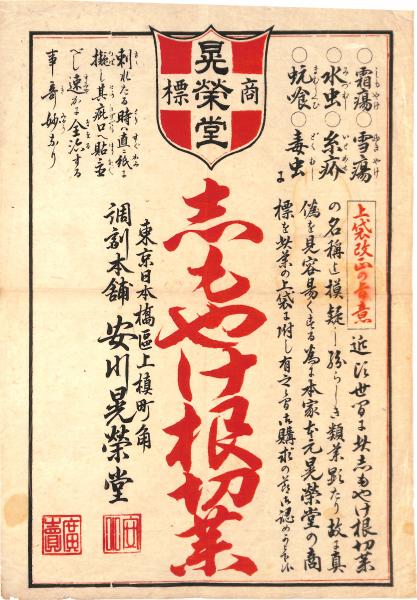 ○霜瘍○雪瘍
○水虫○糸疥
○蚖喰○毒虫に
刺れたる時ハ直に紙に
擬し其疵口へ貼玉
べし速かに全治する
事奇妙なり
商標
晃榮堂
上袋改正の旨意
近頃世間に此志もやけ根切薬
の名称を模疑し紛らしき類薬顕たり故に真
偽を見容易くする為に本家本元晃榮堂の商
標を此薬の上袋に附し有之
志もやけ根切薬
東京日本橋區上槙町角
調剤本舗 安川晃榮堂